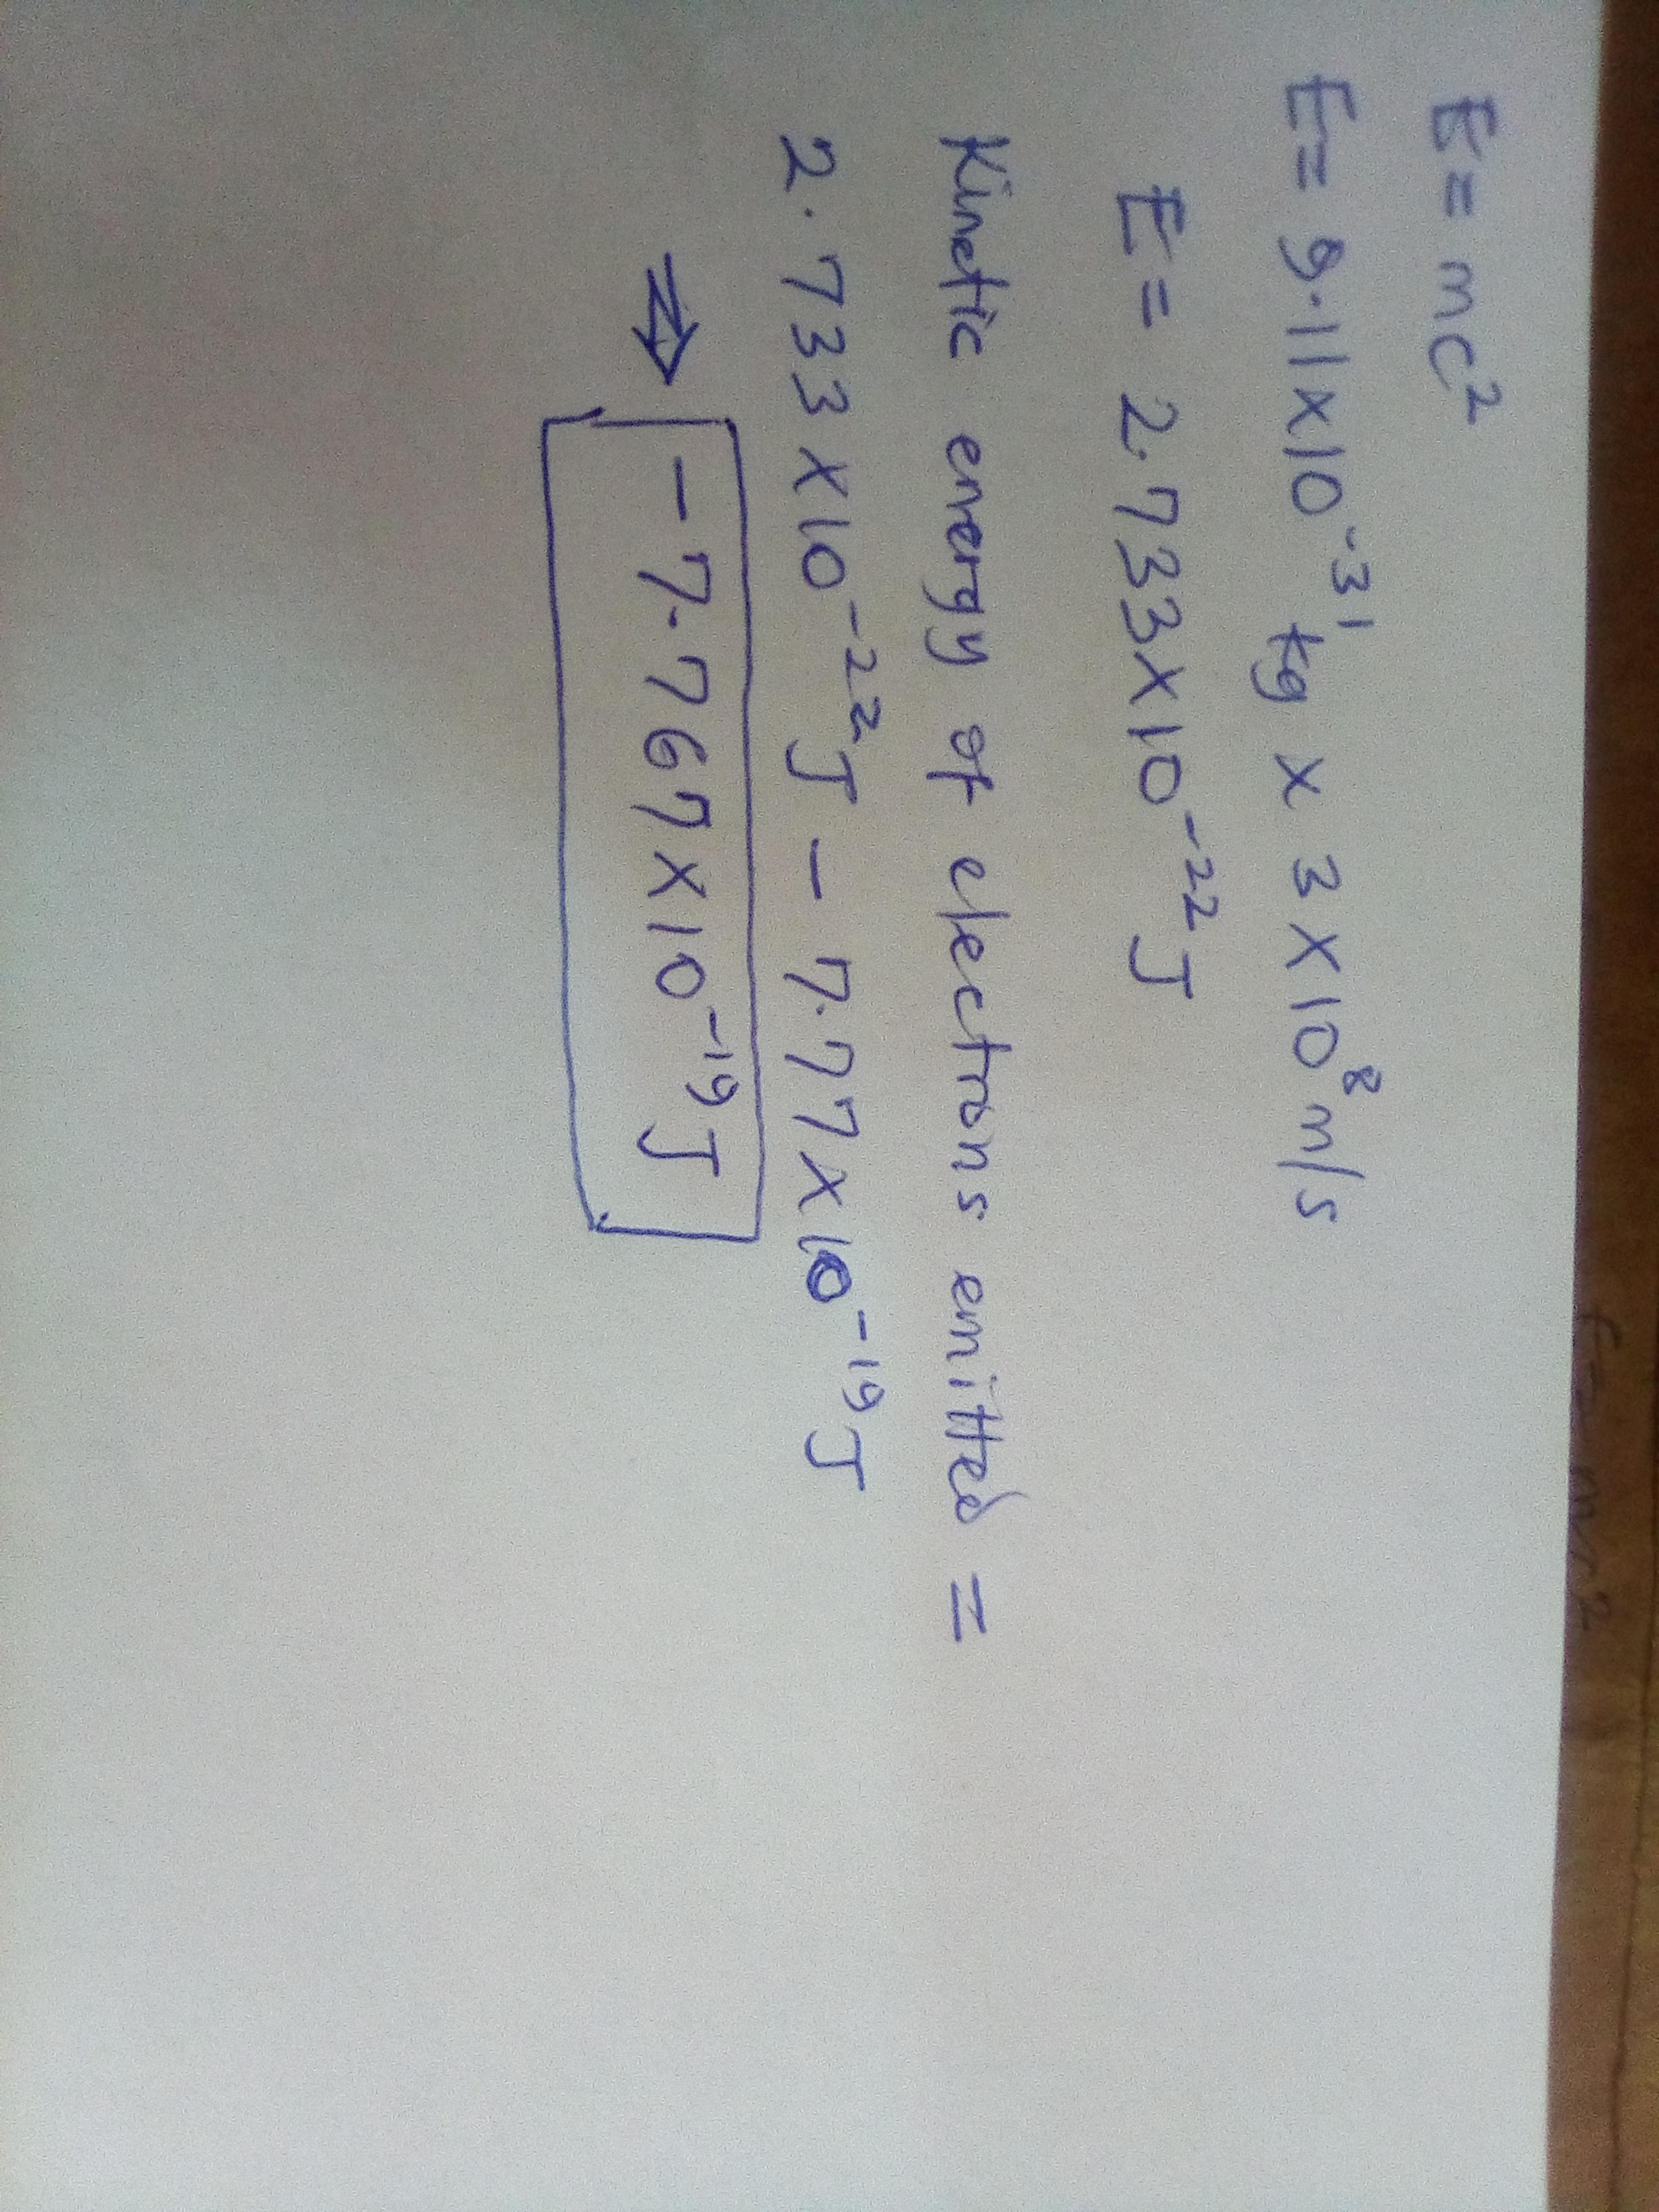 E = mc²
E = 9.11x10⁻³¹ kg x 3x10⁸ m/s
E = 2.733x10⁻²² J
Kinetic energy of electrons emitted =
2.733x10⁻²² J - 7.77x10⁻¹⁹ J
⇒ -7.767x10⁻¹⁹ J